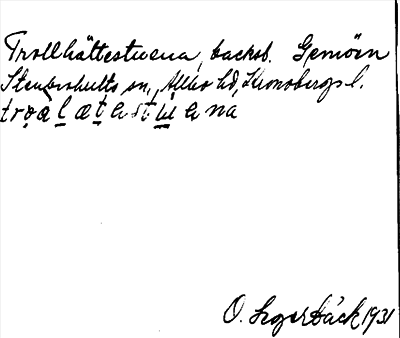 Trollhättestuena, backst. Gemön
Stenbrohults sn, Allbo hd, Kronobergs l.
O. Segerbäck 1931